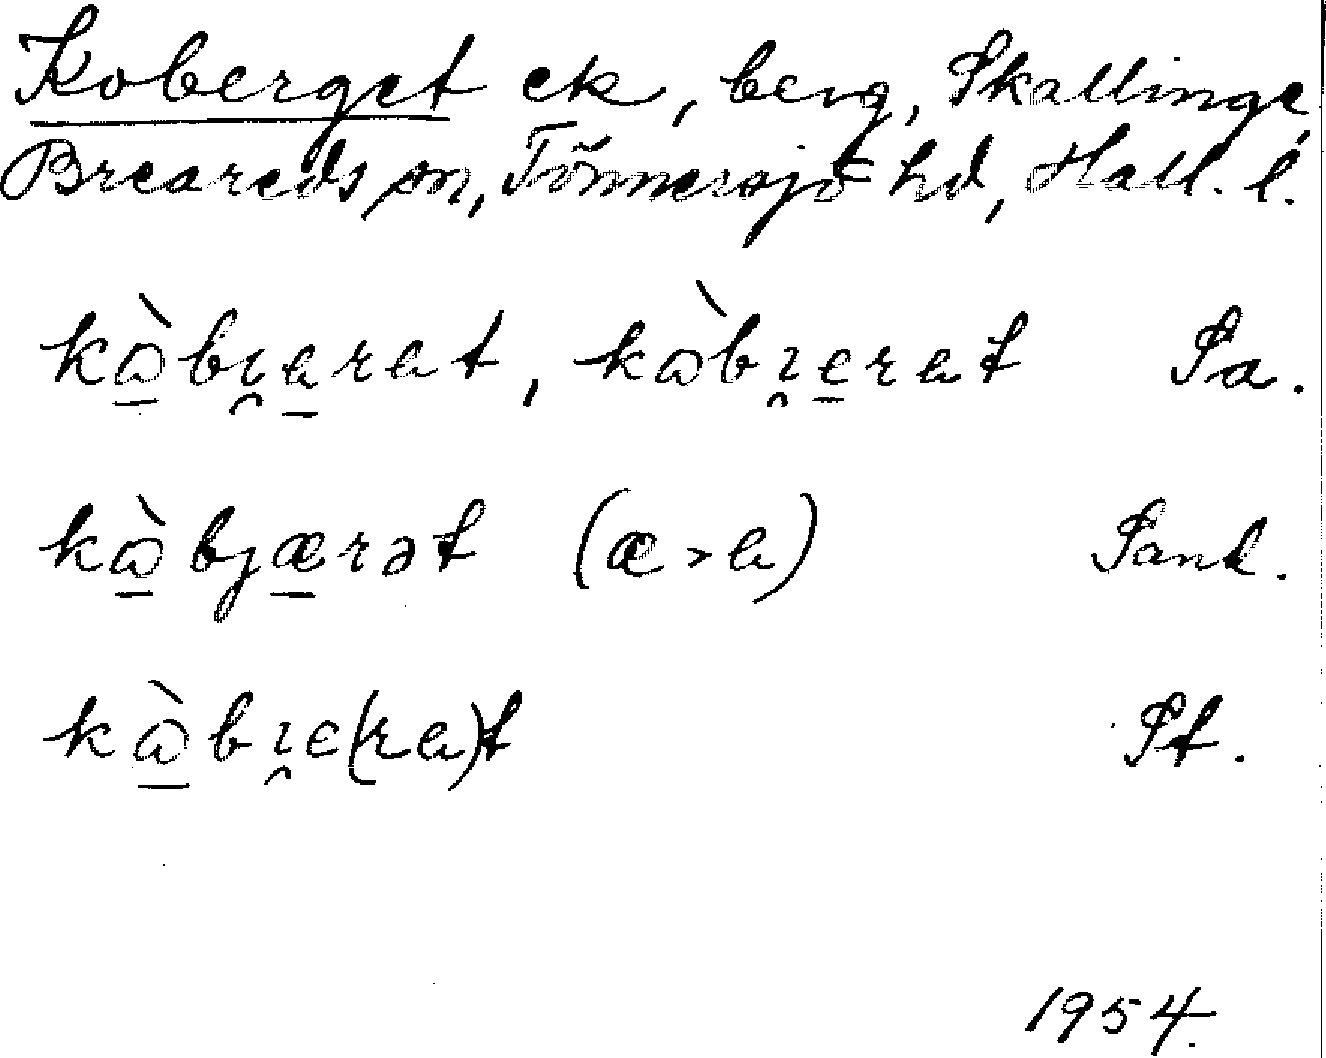 Koberget ek, berg, Skallinge,
Breareds sn, Tönnersjö hd, Hall. l.
kò̱bı̯a̱rat, kòbı̯e̱rat Sa.
kò̱bjæ̱rət (æ > a) Sand.
kò̱bı̯e(ra)t St.
1954.